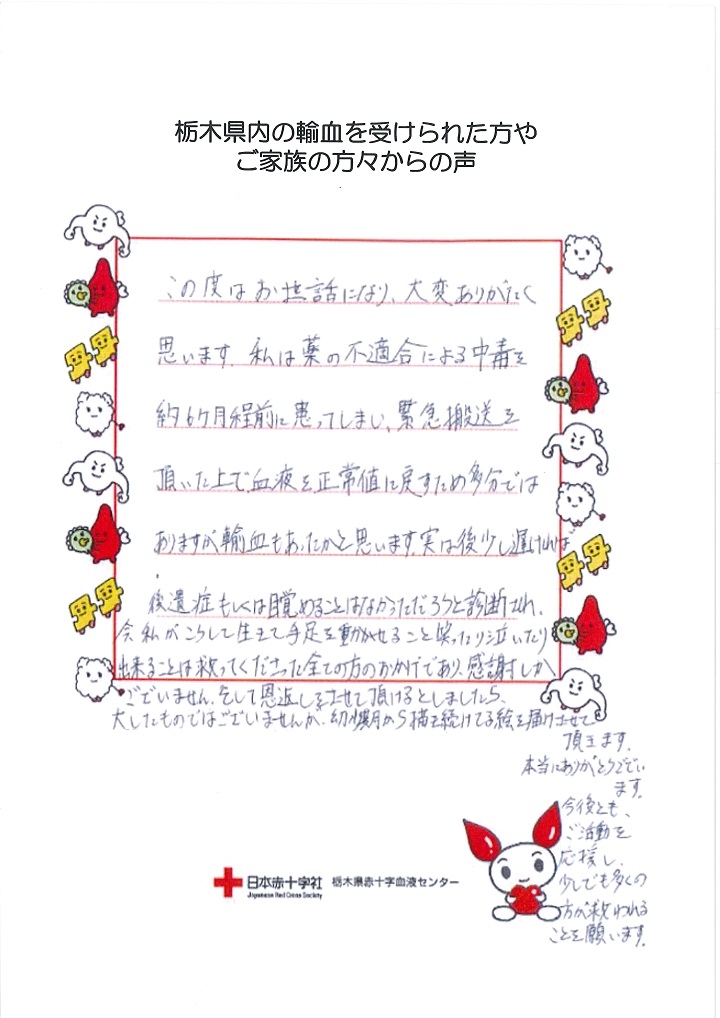 栃木県内の輸血を受けられた方や
ご家族の方々からの声
この度はお世話になり、大変ありがたく
思います。私は薬の不適合による中毒を
約6ケ月程前に患ってしまい、緊急搬送を
頂いた上で血液を正常値に戻すため多分では
ありますが輸血もあったかと思います。実は後少し遅ければ
後遺症もしくは目覚めることはなかっただろうと診断され、
今私がこうして生きて手足を動かせること笑ったり泣いたり
出来ることは救ってくださった全ての方のおかげであり、感謝しか
ございません。そして恩返しをさせて頂けるとしましたら、
大したものではございませんが、幼少期から描き続けてる絵を届けさせて
頂きます。
本当にありがとうござい
ます。
今後とも、
ご活動を
応援し、
少しでも多くの
方が救われる
ことを願います。
日本赤十字社 栃木県赤十字血液センター
Japanese Red Cross Society